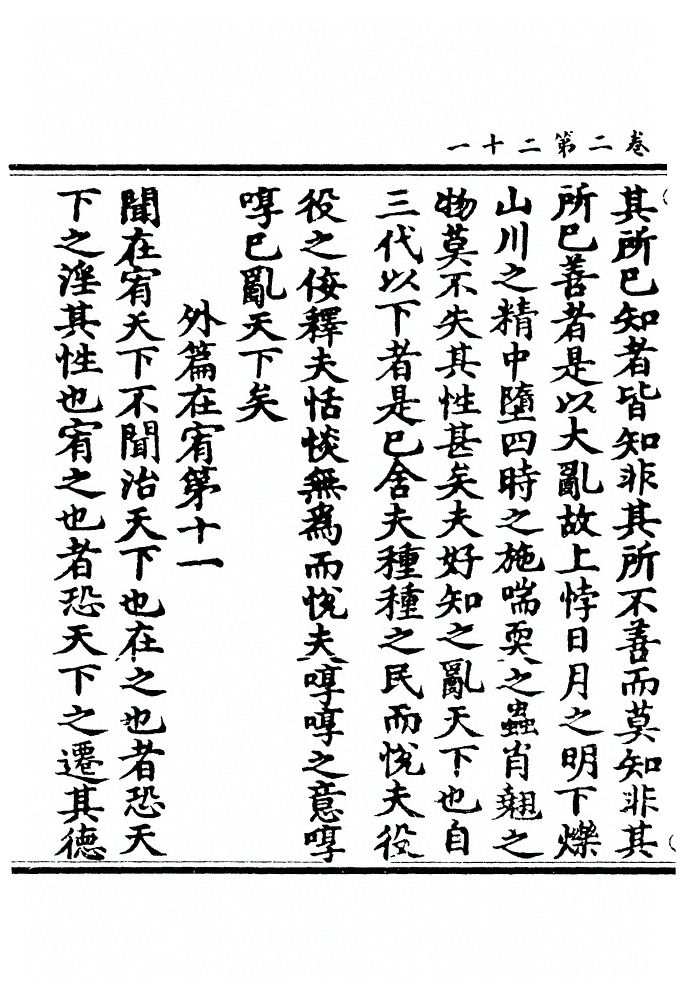 卷二第二十一
其所已知者皆知非其所不善而莫知非其
所已善者是以大亂故上悖日月之明下爍
山川之精中墮四時之施喘耎之蟲肖翹之
物莫不失其性甚矣夫好知之亂天下也自
三代以下者是已舍夫種種之民而悅夫役
役之佞釋夫恬惔無為而悅夫啍啍之意啍
啍已亂天下矣
外篇在宥第十一
聞在宥天下不聞治天下也在之也者恐天
下之淫其性也宥之也者恐天下之遷其德